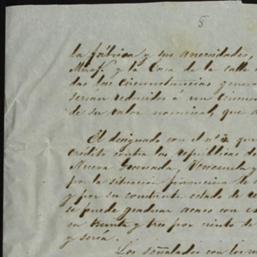 5
la fábrica y sus anecsidades,
y la Casa de la calle
das las circunstancias
seran reducidos a un
de su valor nominal, que
El designado con el nº 3 que
crédito contra las repúblicas de
Nueva Granada, Venezuela y
por la situación financiera de
y por su constante estado de
se puede graduar acaso con
en treinta y tres por ciento de
y seria.
Los señalados con los